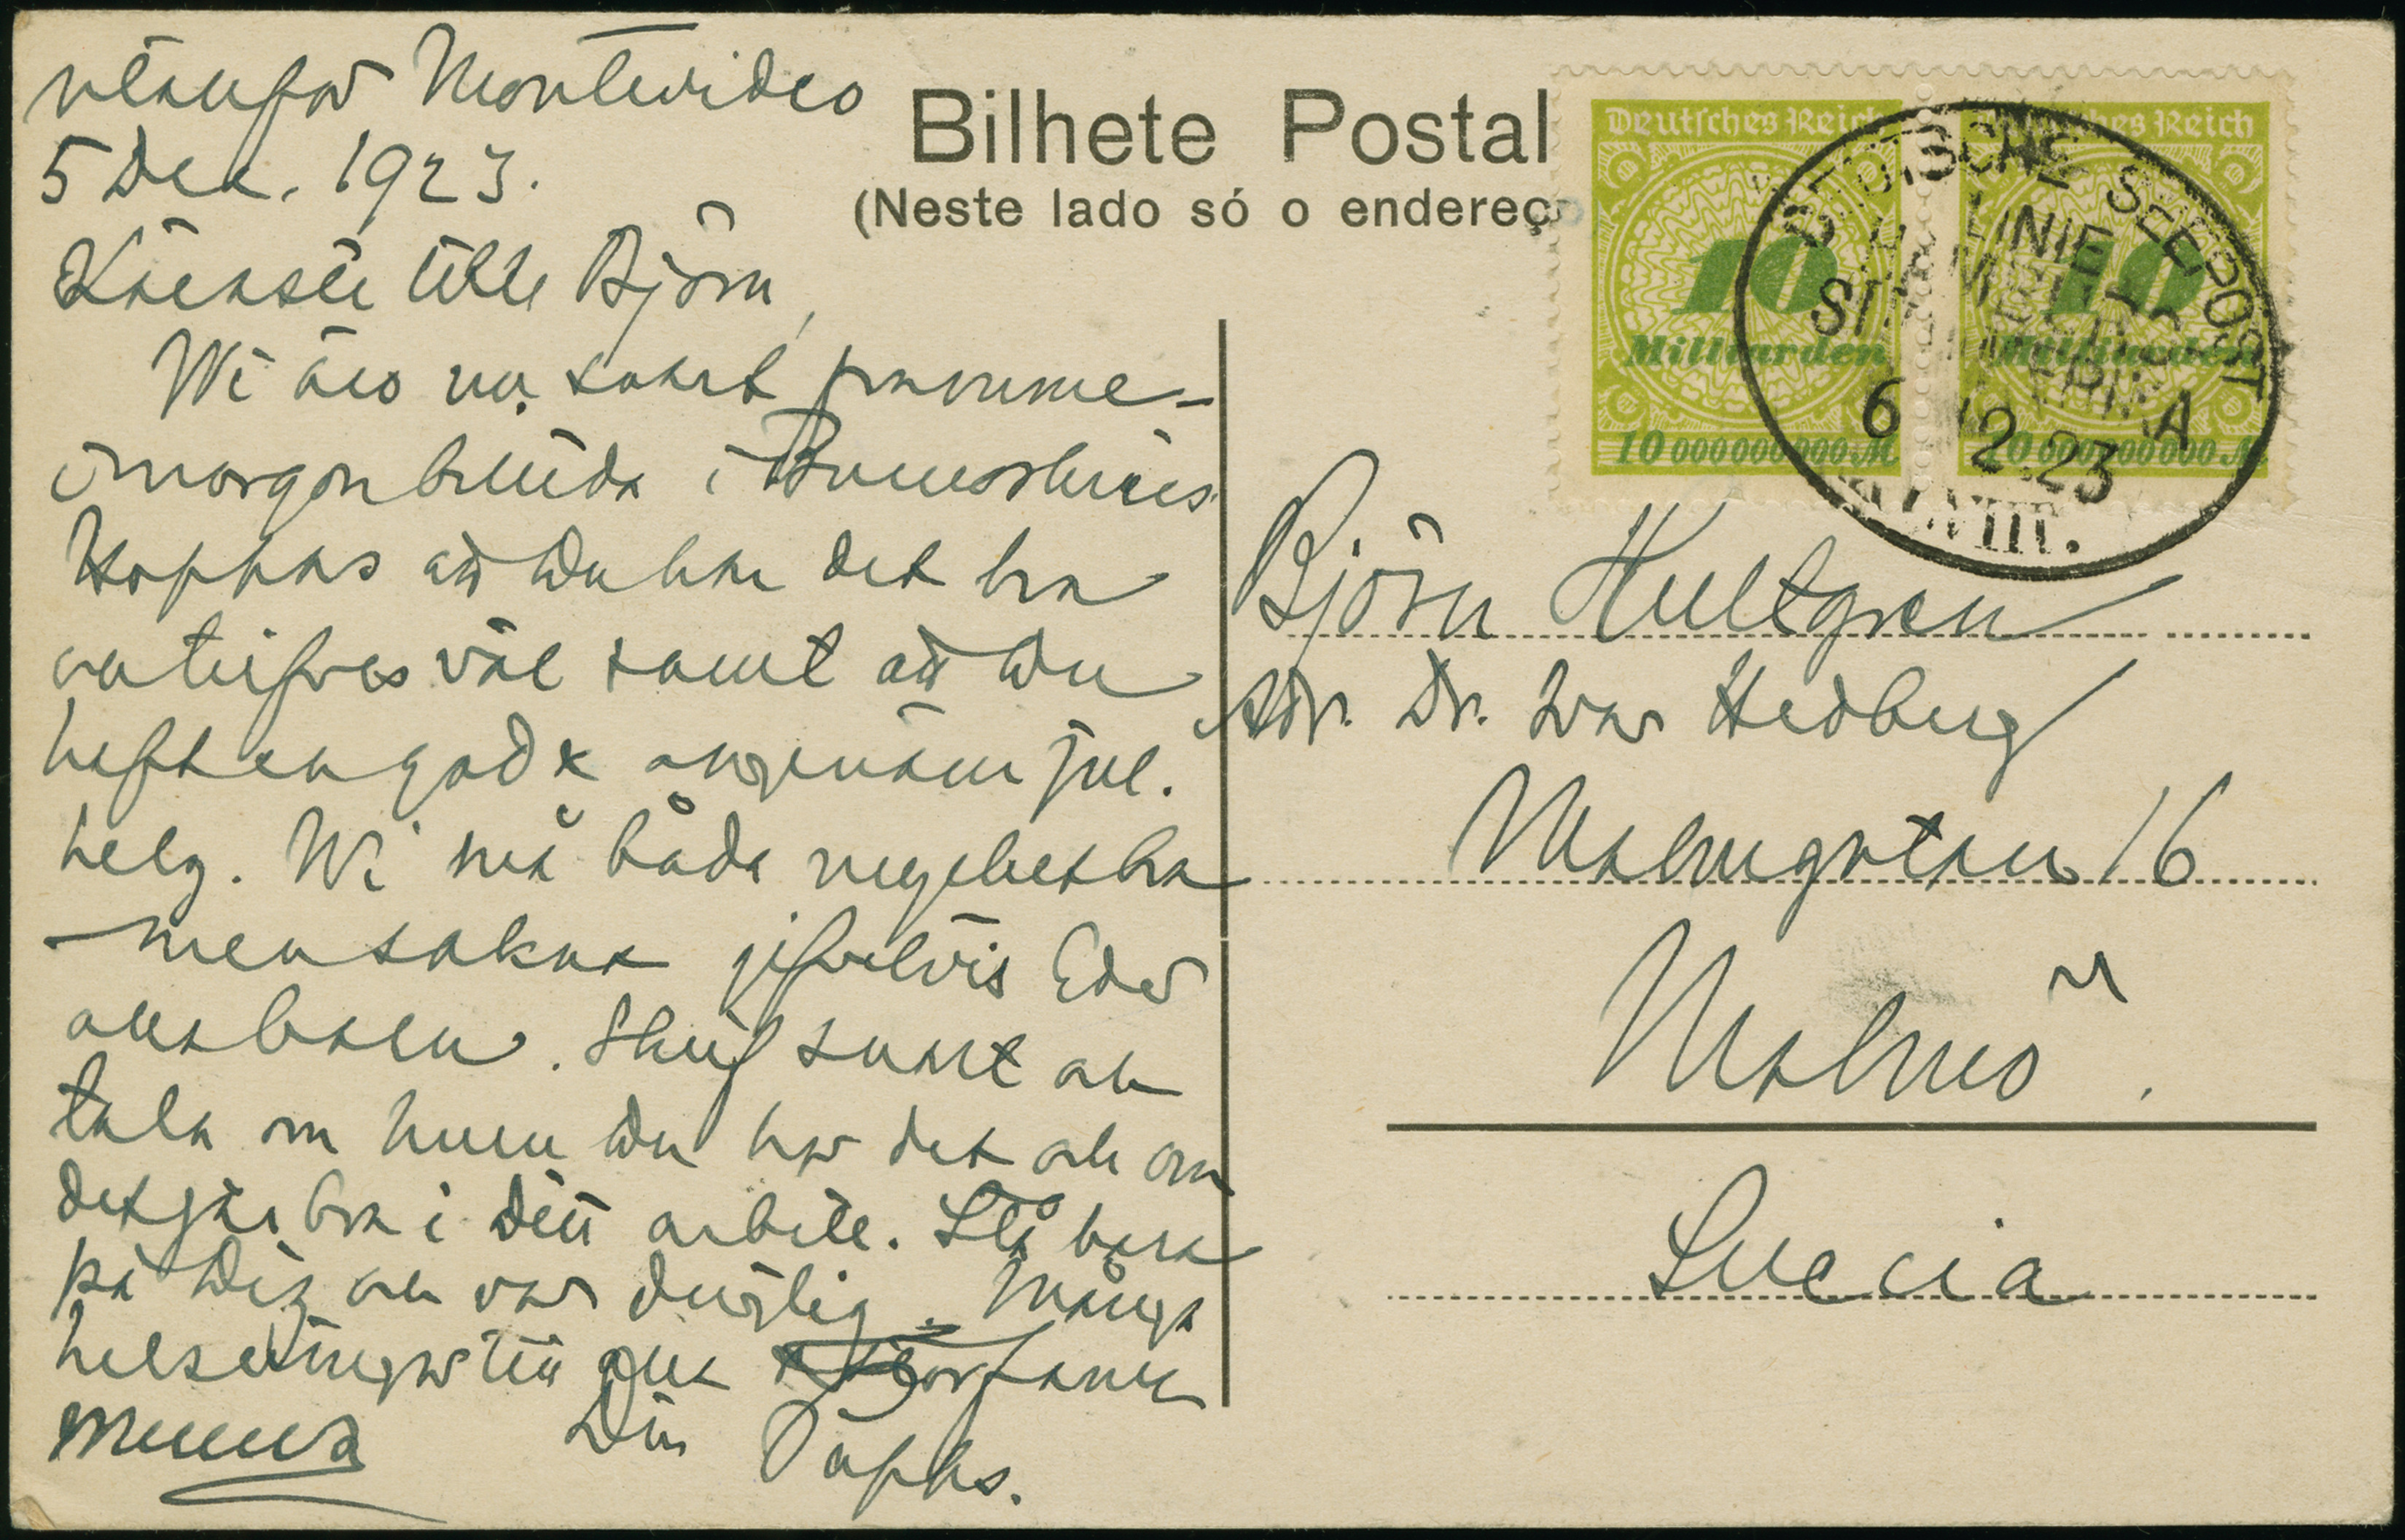 utanför Montevideo
5 Dec. 1923.
Käraste lille Björn,
Wi äro nu snart framme –
i morgon bittida i Buenos Aires
Hoppas att Du har det bra
o trifves väl samt att Du
haft en god & angenäm jul.
helg. Wi må båda mycket bra
– men sakna gifvetvis Eder
alla barn. Skrif snart och
tala om huru Du har det och om
det går bra i Ditt arbete. Stå bara
på Dig och var duglig. Många
helsningar till alla från
Mamma Din Pappa.
Bilhete Postal
(Neste lado só o endereço
Deutsches Reich
10
Milliarden
10 000 000 000 M
Deutsches Reich
10
Milliarden
10 000 000 000 M
DEUTSCHE SEEPOST
LINIE
HAMBURG
SÜDAMERIKA
6 12.23
XVIII.
Björn Hultgren
Adr. Dr. Ivar Hedberg
Malmgatan 16
Malmö.
Suecia